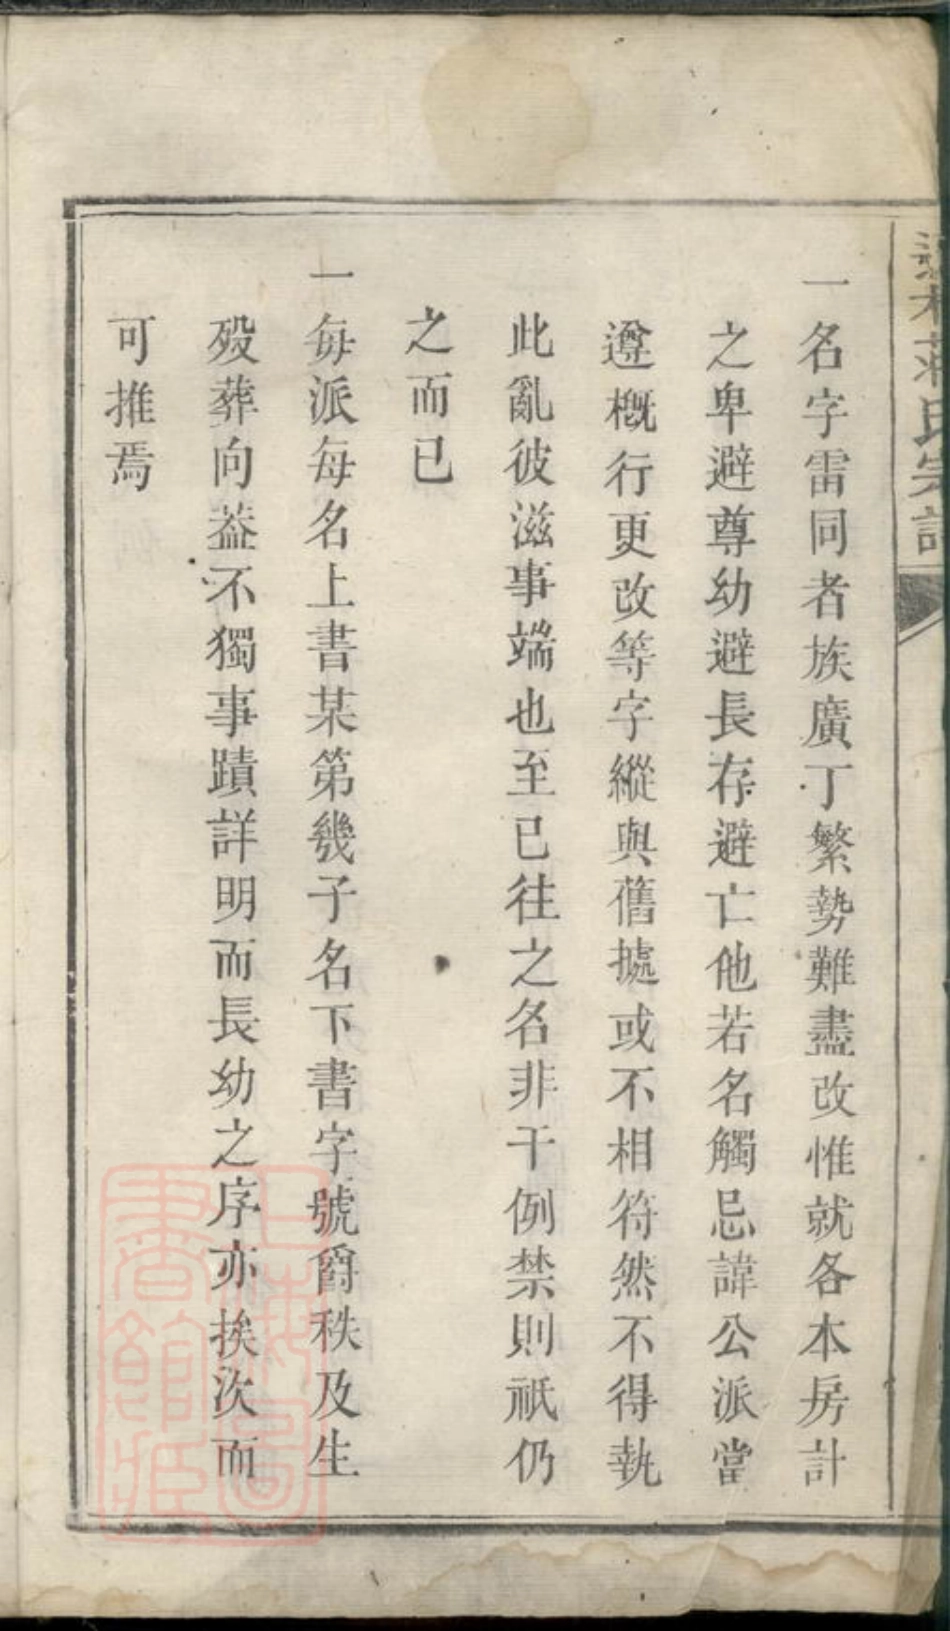 氏宗譜
一名字雷同者族廣丁繁勢難盡改惟就各本房計
之卑避尊幼避長存避亡他若名觸忌諱公派當
遵概行更改等字縱與舊據或不相符然不得執
此亂彼滋事端也至已往之名非干例禁則祇仍
之而已
一每派每名上書某第幾子名下書字號爵秩及生
歿葬向葢不獨事蹟詳明而長幼之序亦挨次而
可推焉
上海圖
書館藏